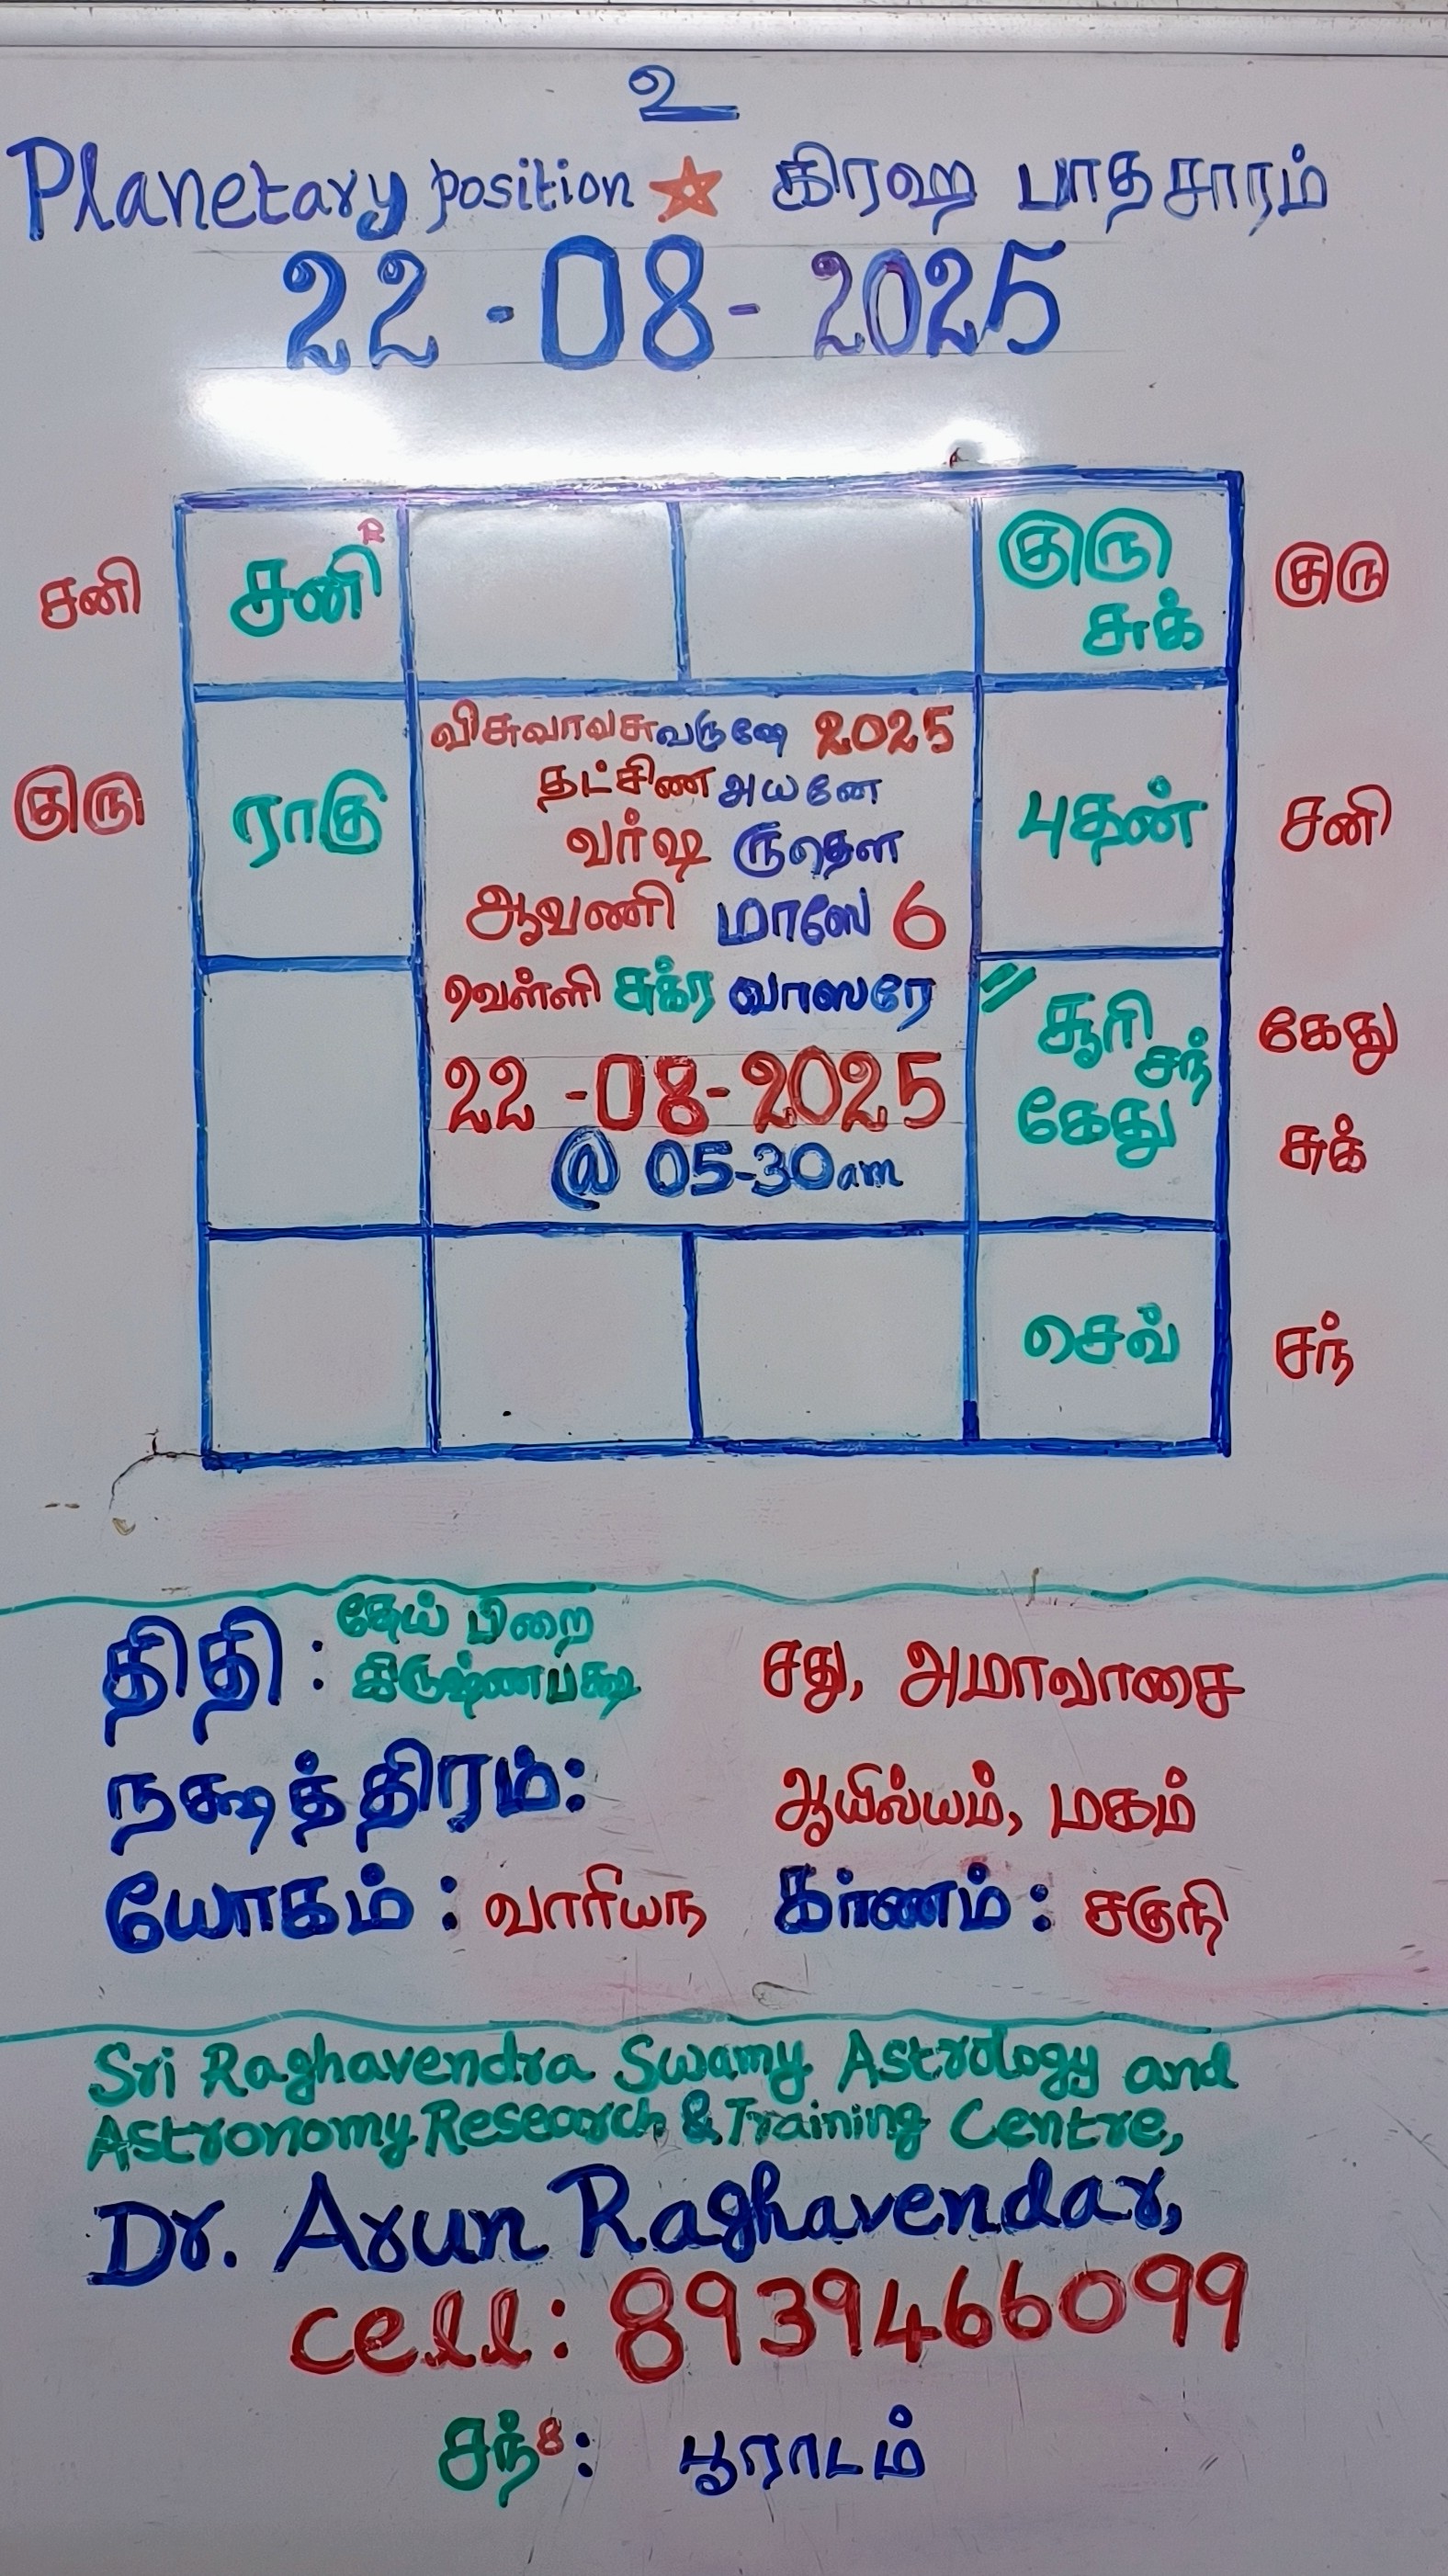 உ
Planetary position கிரஹ பாதசாரம்
22-08-2025
சனி சனி R குரு சுக் குரு
விசுவாவசு வருஷே 2025
தட்சிண அயனே
குரு ராகு வர்ஷ ருதௌ புதன் சனி
ஆவணி மாஸே 6
வெள்ளி சுக்ர வாஸரே
சூரி சந் கேது கேது
22-08-2025
சுக்
@ 05-30am
செவ் சந்
திதி: தேய் பிறை சது, அமாவாசை
கிருஷ்ணபக்ஷ
நக்ஷத்திரம்: ஆயில்யம், மகம்
யோகம்: வாரியந கர்ணம்: சகுநி
Sri Raghavendra Swamy Astrology and
Astronomy Research & Training Centre,
Dr. Arun Raghavendar,
cell: 8939466099
சந்8: பூராடம்